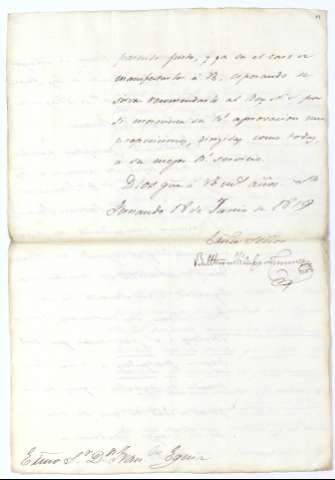 parecido justo, y ya en el caso de
manifestarlo á V.E. esperando se
sirva recomendarlo al Rey N. S. por
si mereciese su Rl. aprovacion
proposiciones, dirigidas como todas
a su mejor Rl. servicio.
Dios gue. á V.E. ms. años.
Fernando 18 de Junio de 1819
Exmo. Señor
Exmo Sr. Dn. Fran.co Eguia